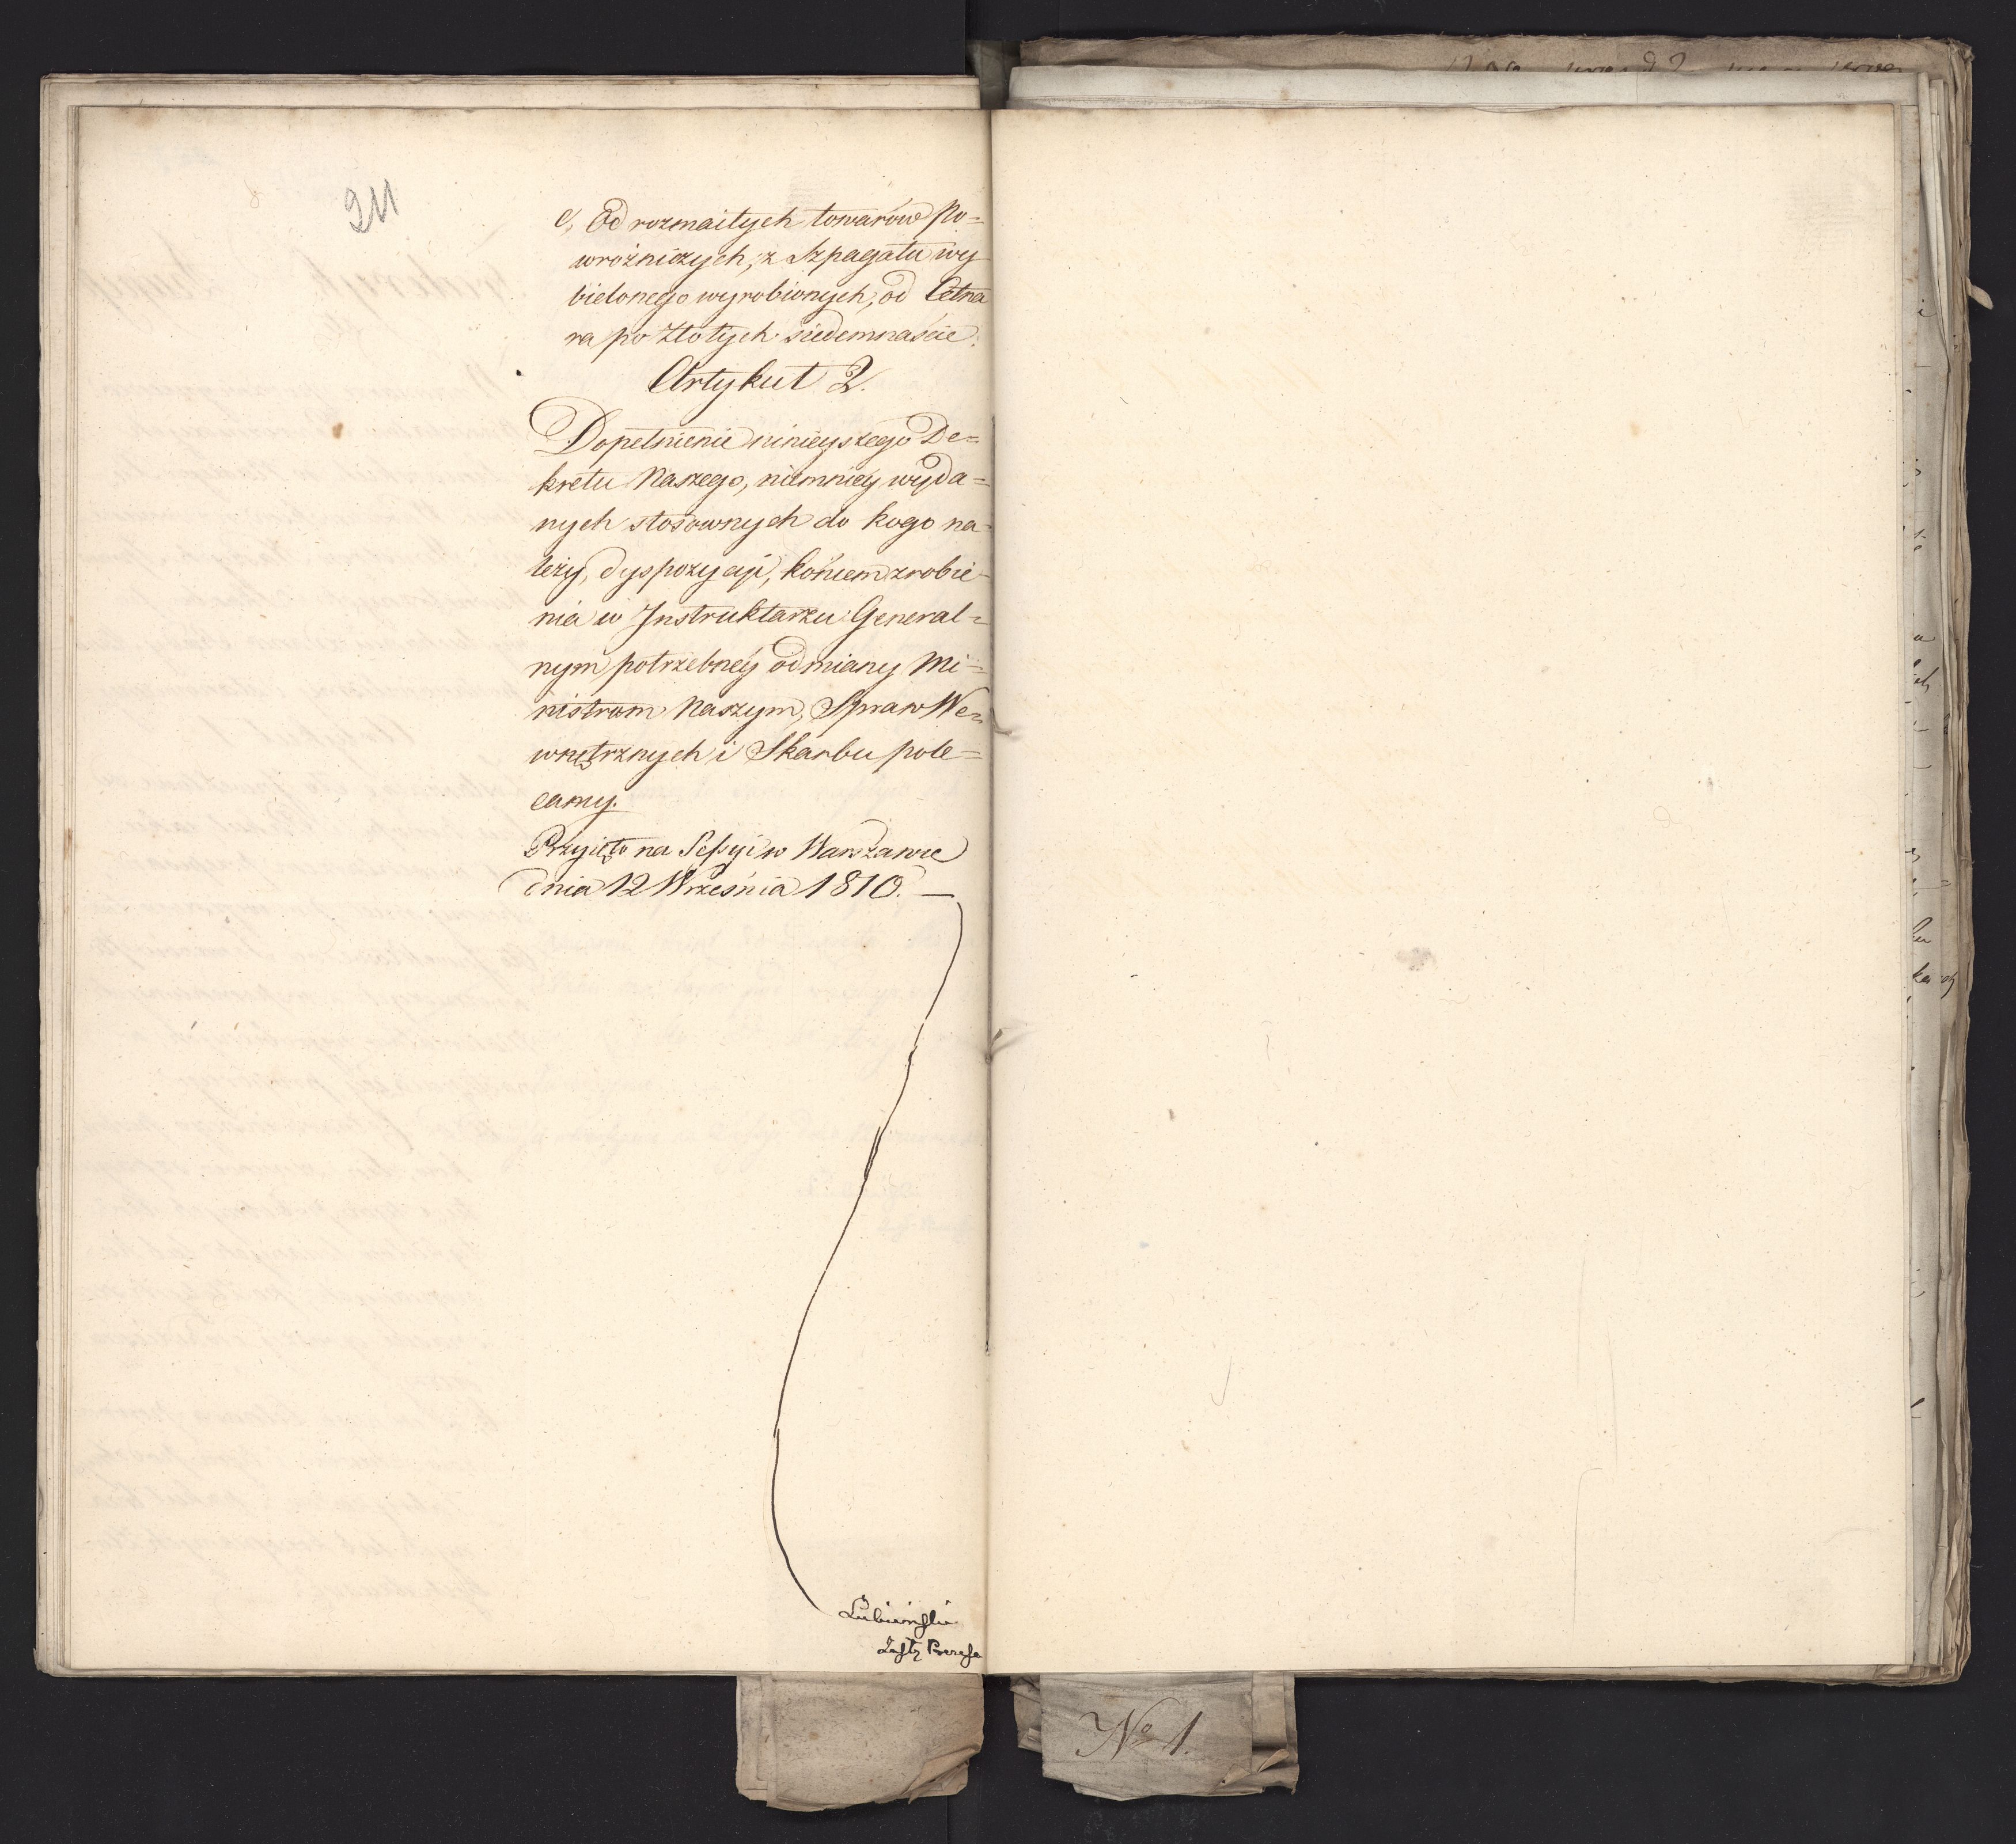 211
c, Od rozmaitych towarów Po=
wroźniczych, z Szpagatu wy
bielonego wyrobionych, od Cetna
ra po Złotych siedemnaście.
Artykuł 2.
Dopełnienie ninieyszego De=
kretu Naszego, niemniey wyda=
nych stosownych do kogo na=
leży, dyspozycyi, końcem zrobie=
nia w Instruktarzu General=
nym potrzebney odmiany Mi=
nistrom Naszym, Spraw We=
wnętrznych i Skarbu pole=
camy.
Przyięto na Sessyi w Warszawie
dnia 12 Września 1810. —
Łubieński
Zastę. Prezesa
No 1.